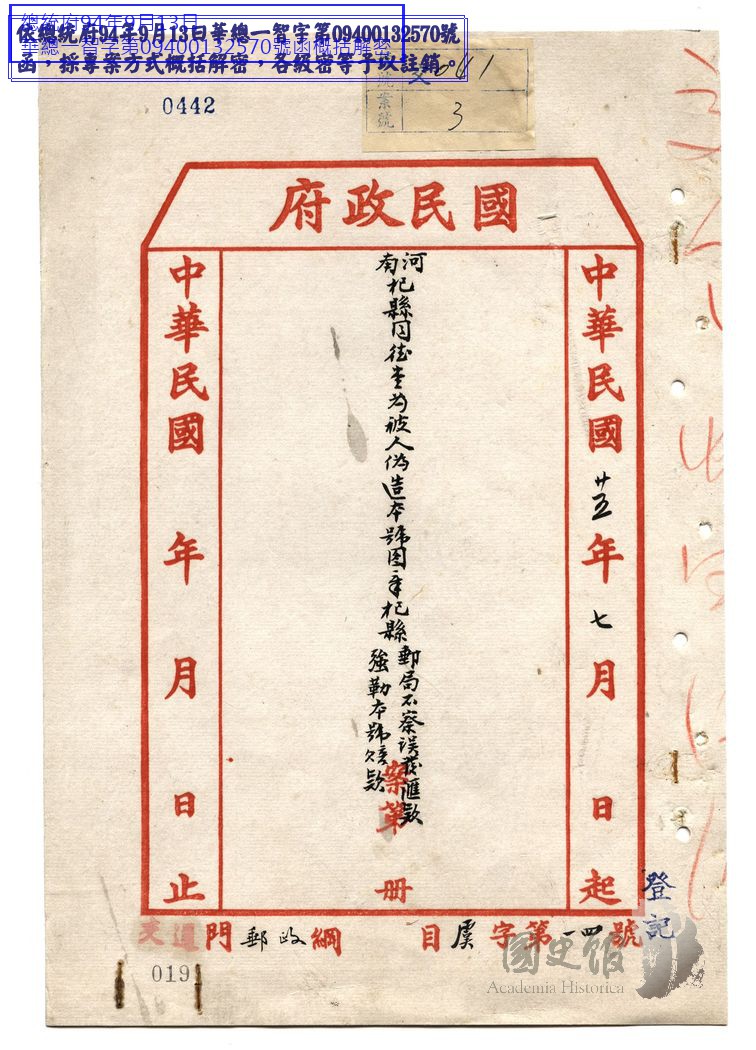 總統府94年9月13日
華總一智字第09400132570號函概括解密
依總統府94年9月13日華總一智字第09400132570號
函，採專案方式概括解密，各級密等予以註銷。
0442
041
案號
3
國民政府
中華民國廿五年七月日起
河南杞縣同德
為被人偽造本號圖章杞縣
郵局不察誤發匯款
強勒本號賠款
案單
冊
中華民國年月日止
交通門郵政綱
目虞字第一四號
登記
019
國史館
Academia Historica